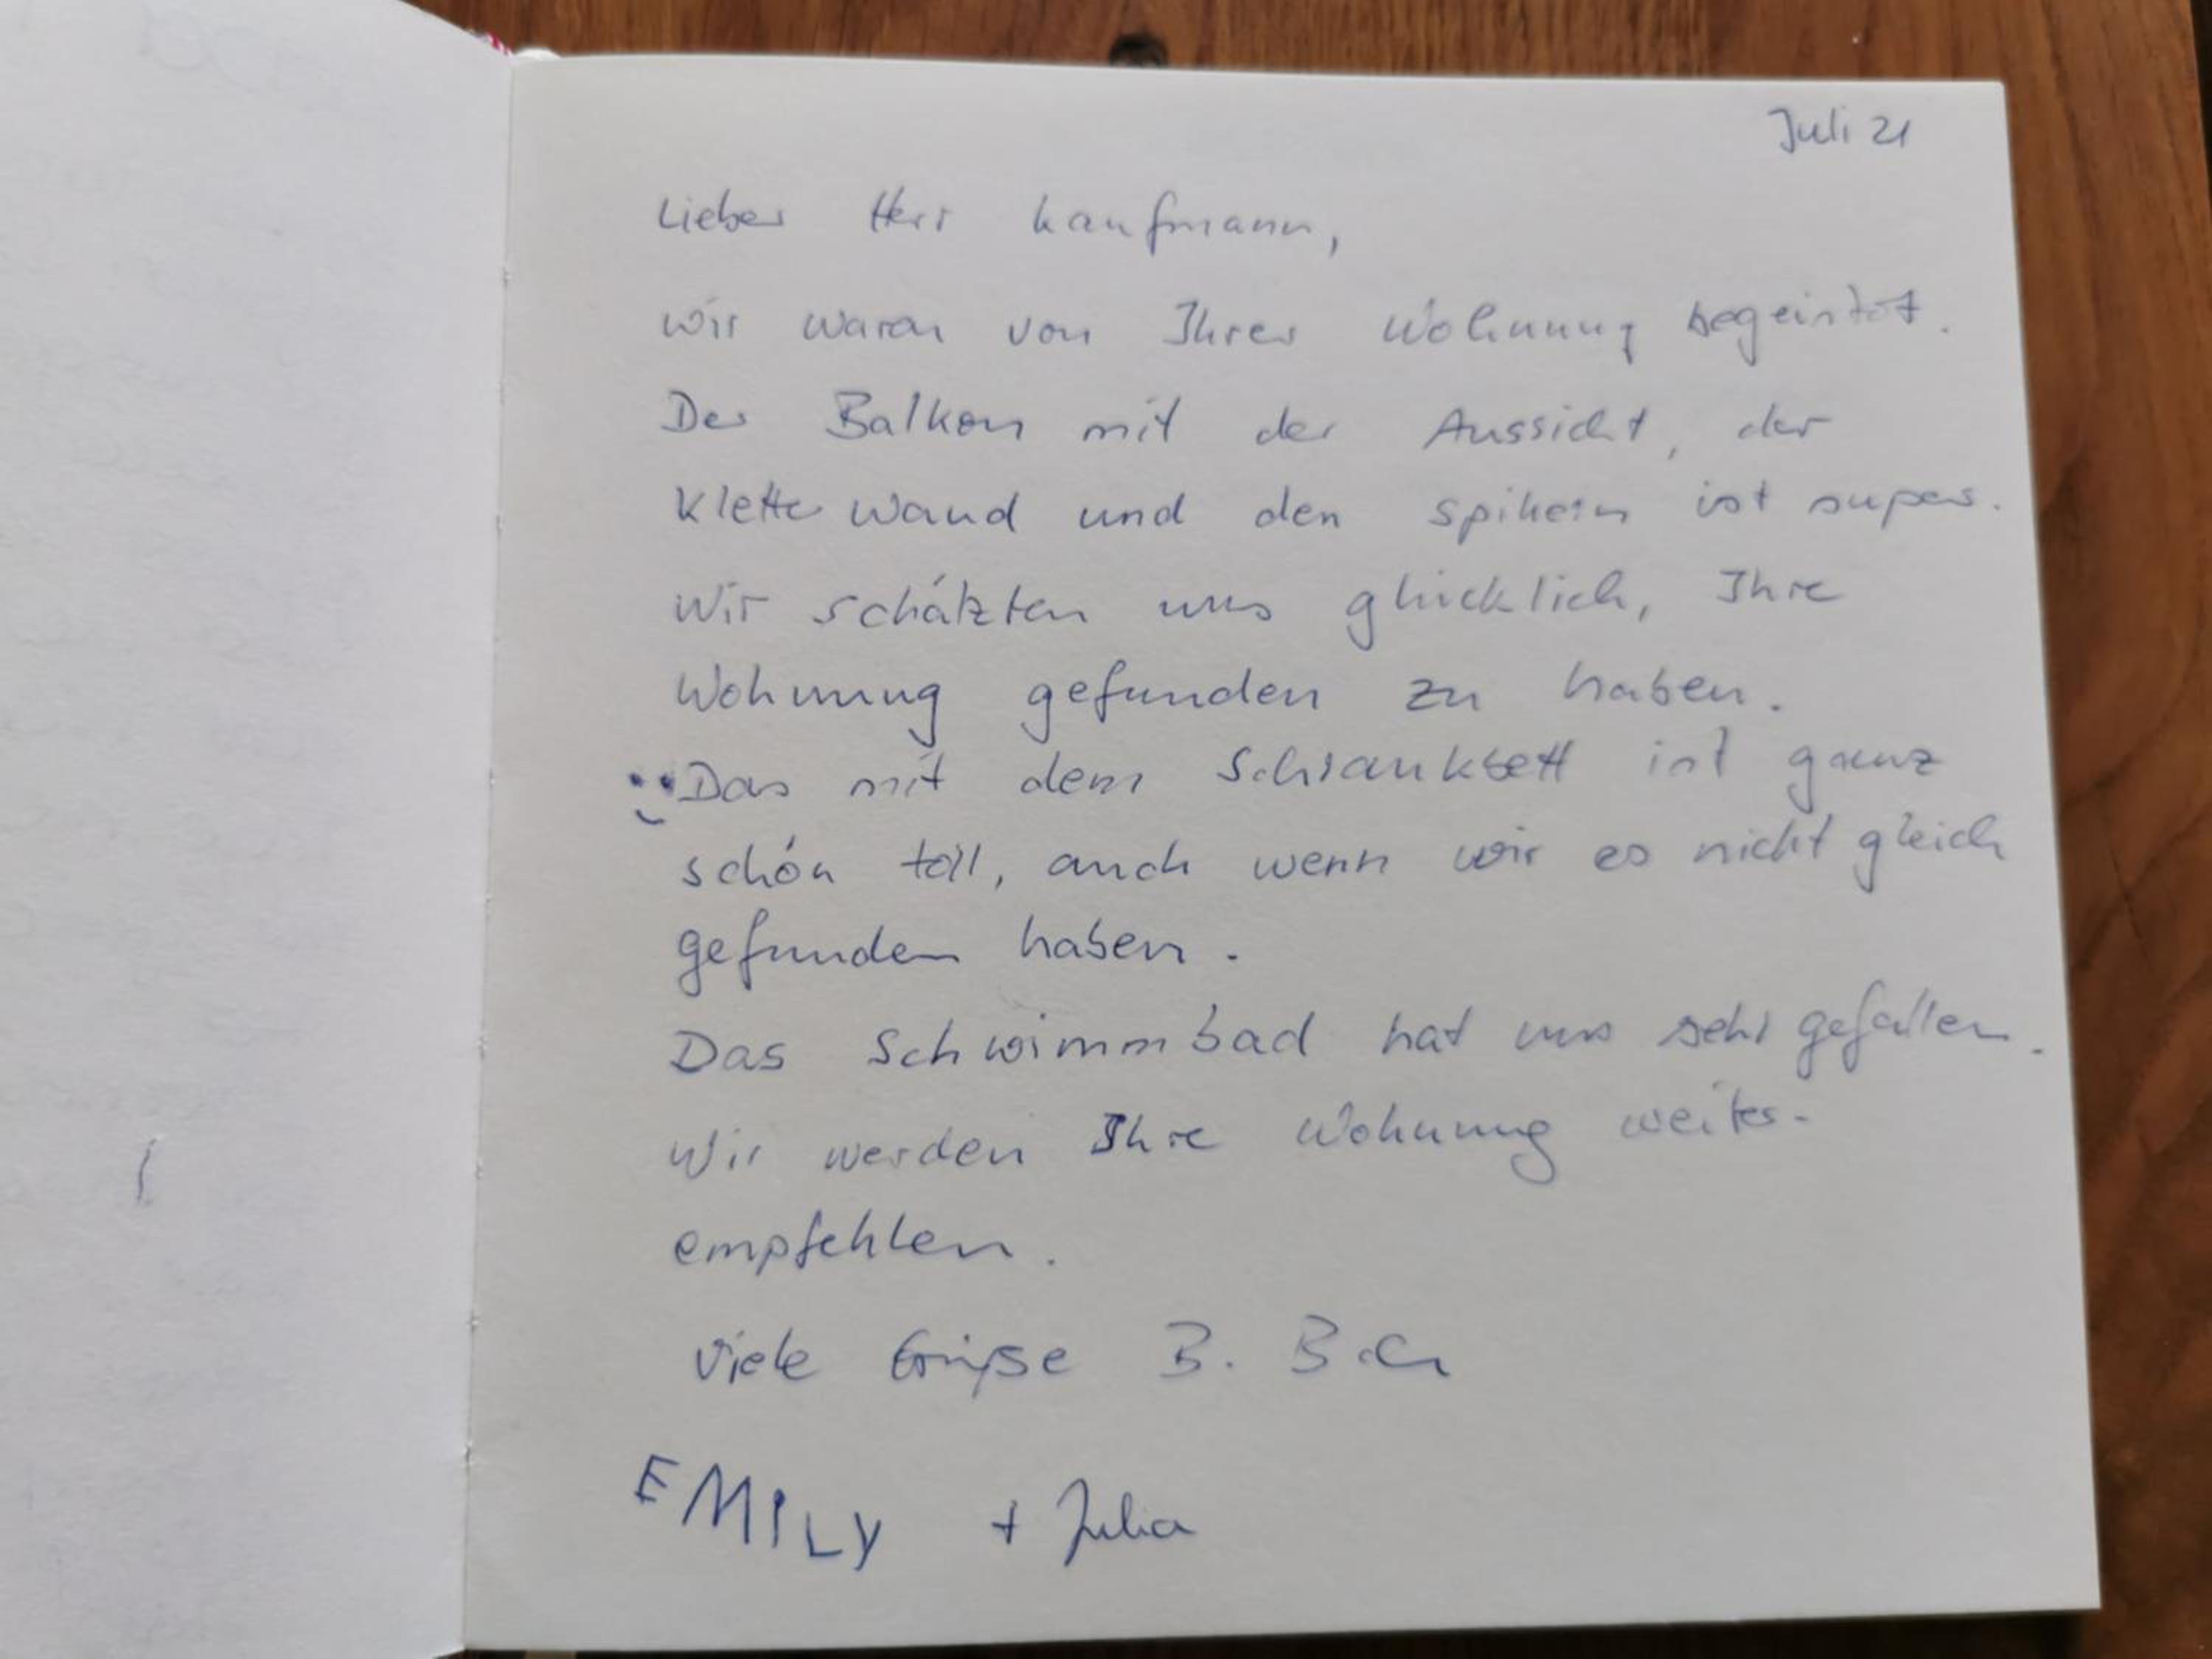 Juli 21
Lieber Herr Kaufmann,
wir waren von Ihrer Wohnung begeistert.
Der Balkon mit der Aussicht, der
Kletterwand und den spikern ist super.
Wir schätzten uns glücklich, Ihre
Wohnung gefunden zu haben.
Das mit dem Schrankbett ist ganz
schön toll, auch wenn wir es nicht gleich
gefunden haben.
Das Schwimmbad hat uns sehr gefallen.
Wir werden Ihre Wohnung weiter-
empfehlen.
Viele Grüße B.
EMILY + Julia